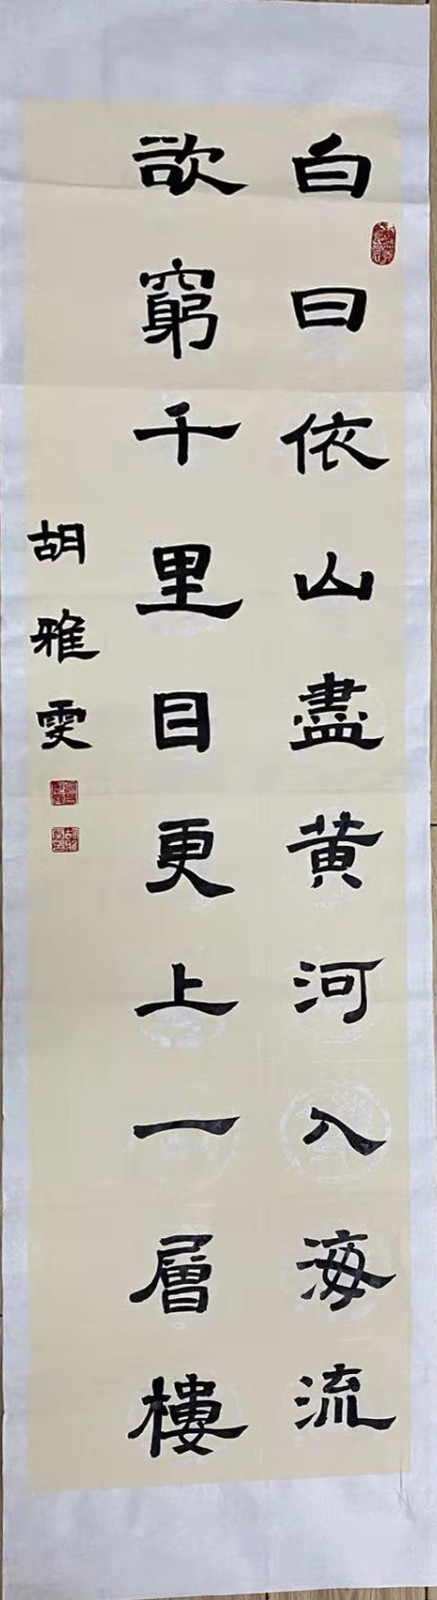 白日依山盡黄河入海流
欲窮千里目更上一層樓
胡雅雯